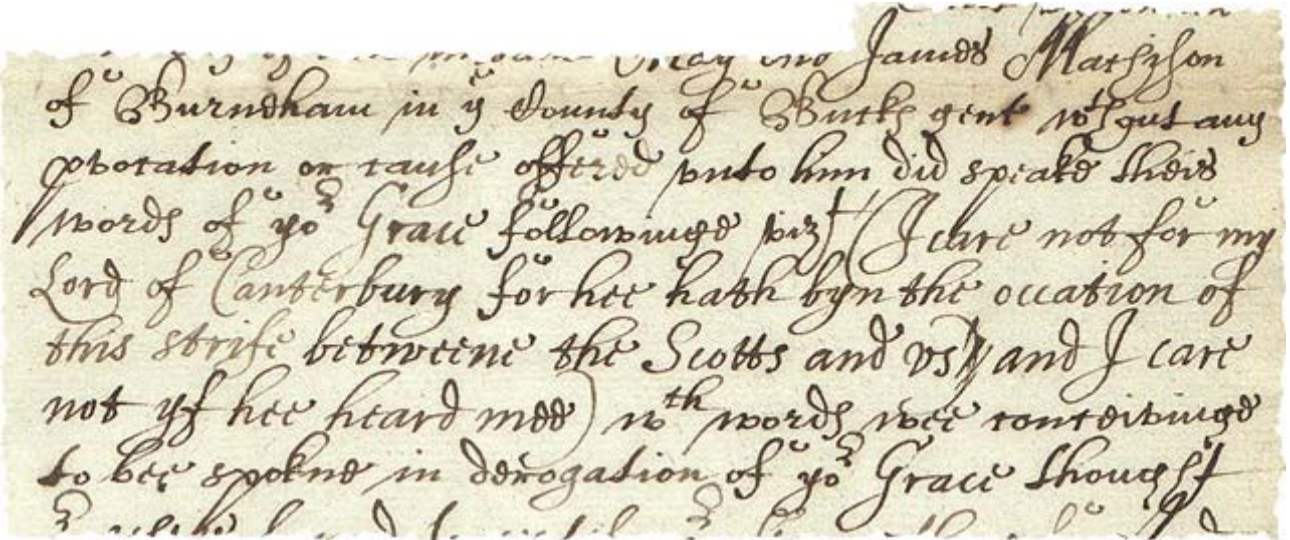 May one James Mathison
of Burneham in ye County of Buck gent wthout any
pvocation or cause offered vnto him did speake theis
words of yor Grace followinge vizt (I care not for my
Lord of Canterbury for hee hath byn the occation of
this strife betweene the Scotts and vs, and I care
not yf hee heard mee) wth words wee conceivinge
to bee spokne in derogation of yor Grace thought